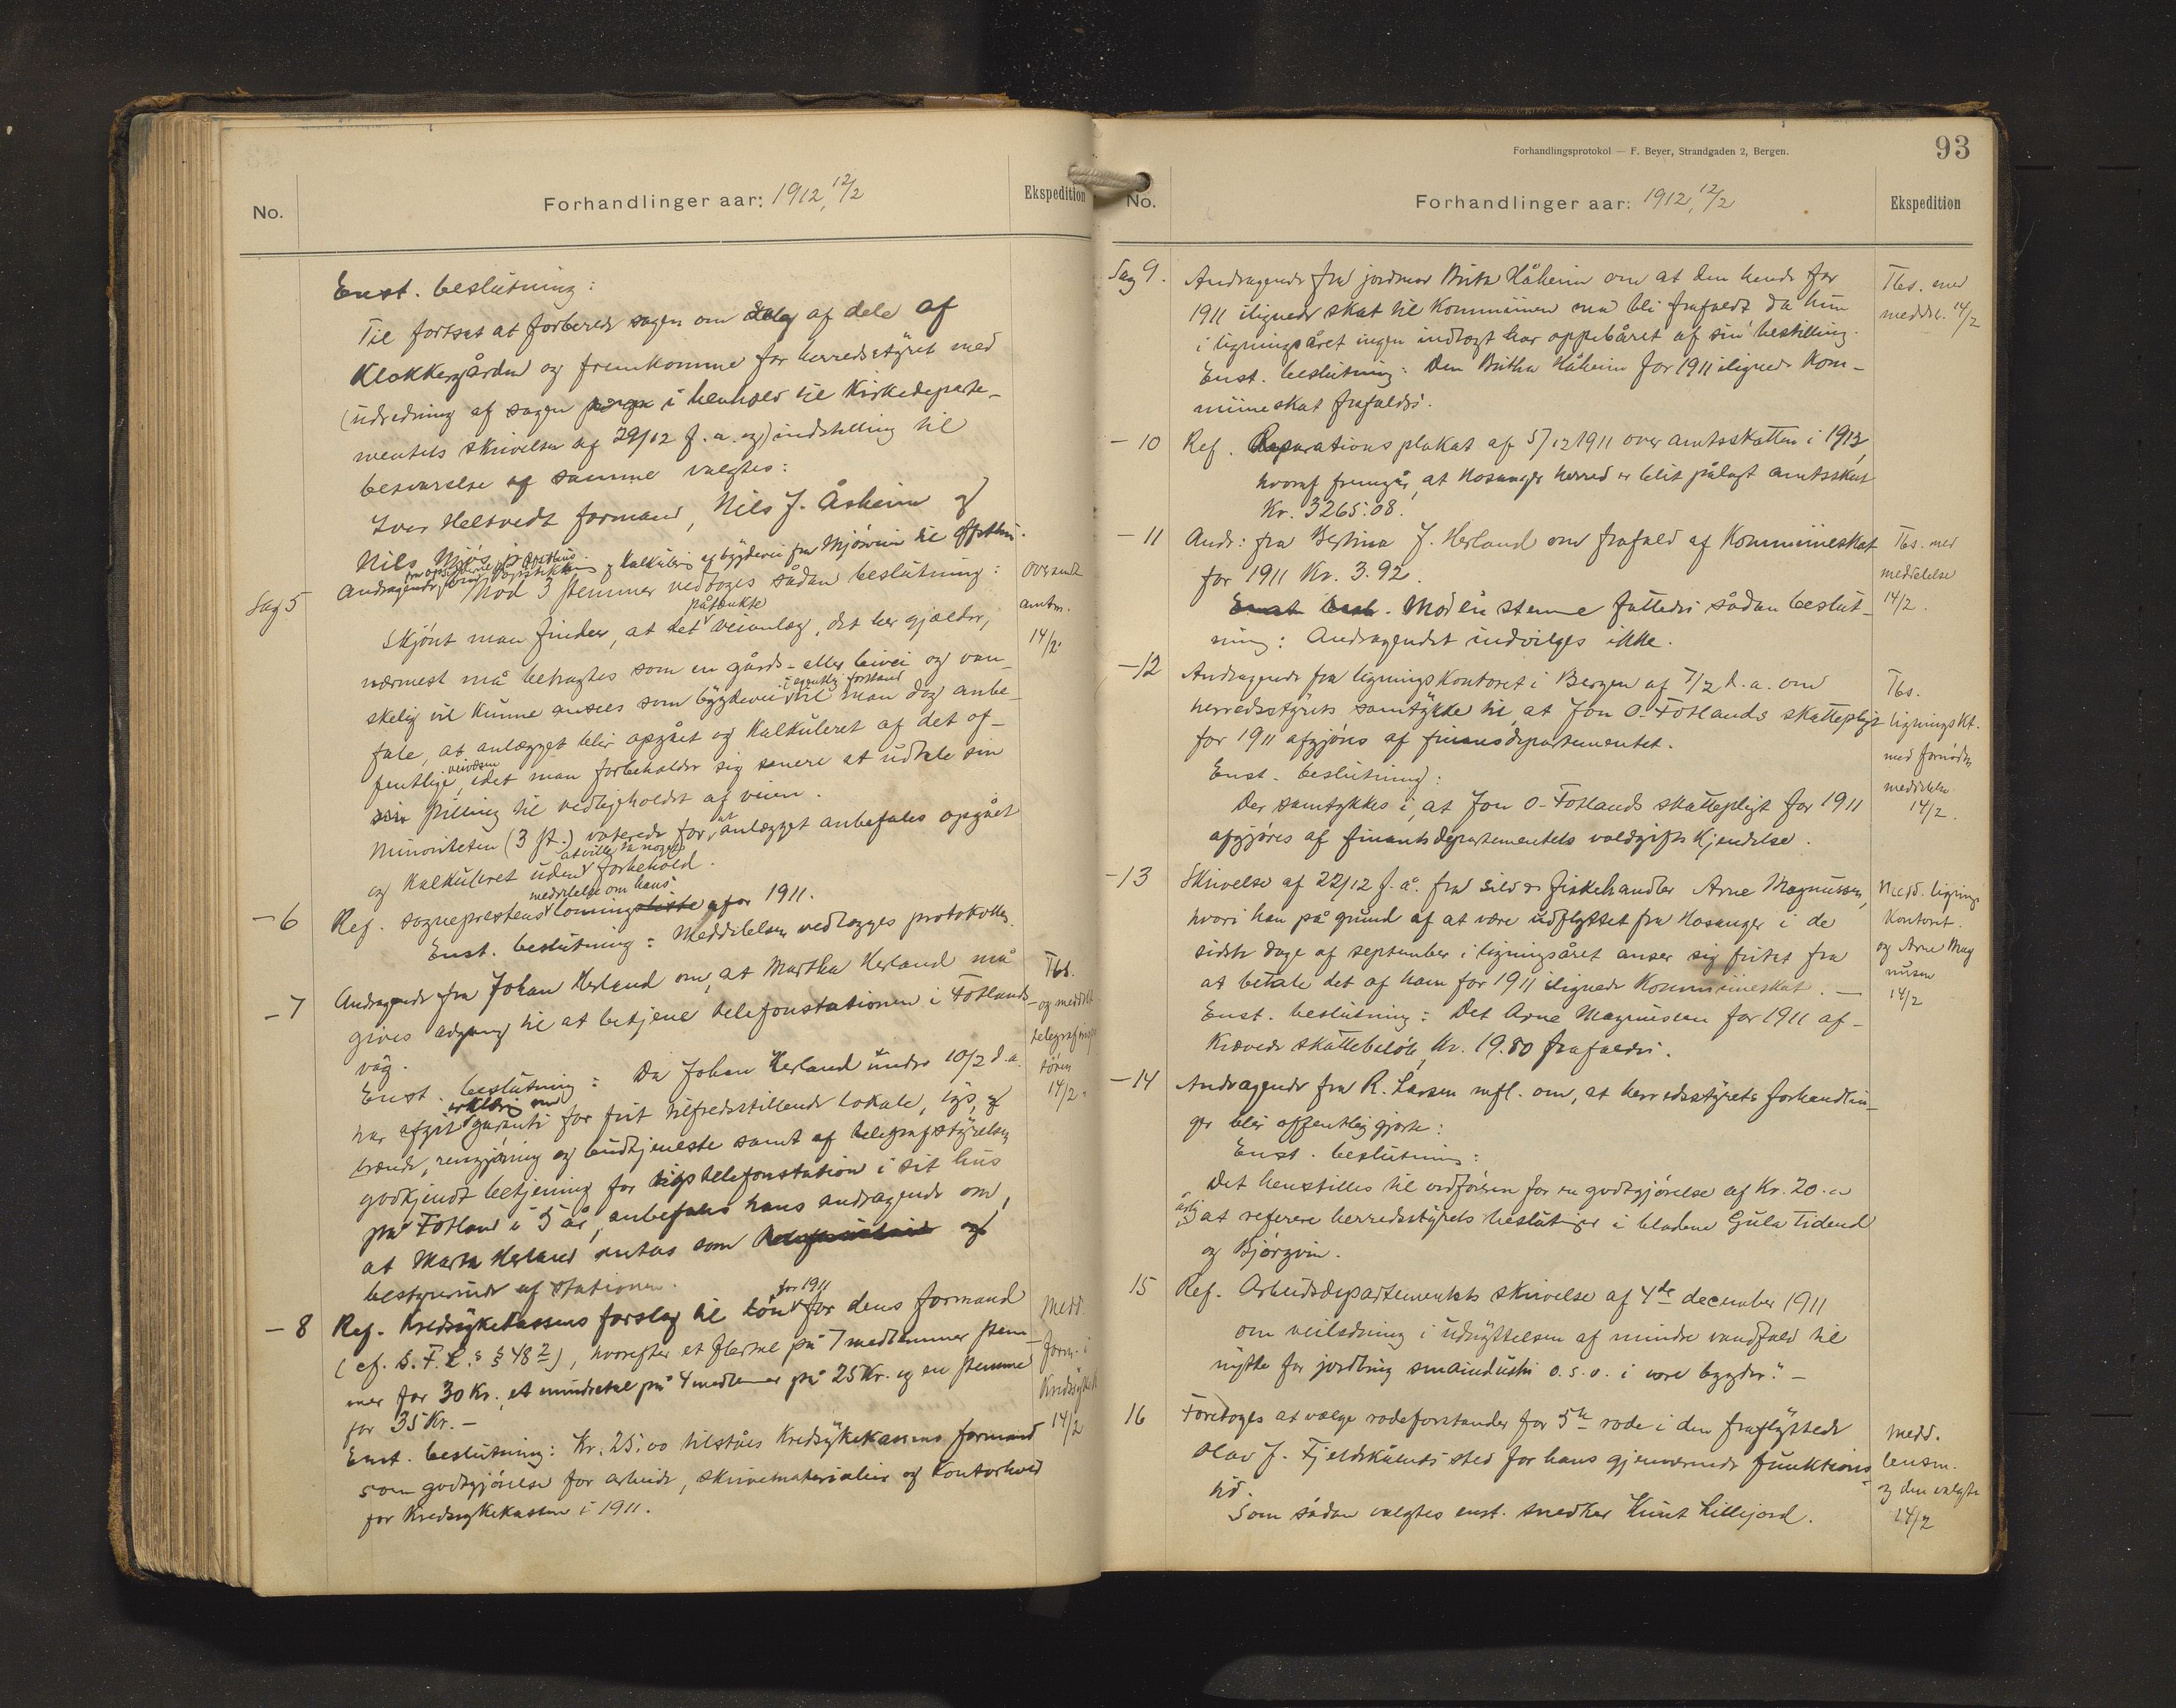 No.
Forhandlinger aar: 1912, 12/2
Ekspedition
Enst. beslutning:
Til fortsat at forberede sagen om salg af dele af
Klokkergården og fremkomme for herredsstyret med
(udredning af sagen i henhold til Kirkedeparte-
mentets skrivelse af 29/12 f.a. og) indstilling til
besvarelse af samme valgtes:
Iver Heltvedt formand, Nils J. Åsheim og
Nils Mjøs
Sag 5
Andragende om opstikking og kalkulering af bygdevei fra Mjøsvin til
Mod 3 stemmer vedtoges sådan beslutning:
Skjønt man finder, at det påtænkte veianlæg, det her gjælder,
nærmest må betragtes som en gårds- eller bivei og van-
skelig vil kunne ansees som bygdevei i egentlig forstand vil man dog anbe-
fale, at anlægget blir opgået og kalkuleret af det of-
fentlige veivæsen, idet man forbeholder sig senere at udtale sin
stilling til vedligeholdet af veien.
Minoriteten (3 st.) voterede for, at anlægget anbefales opgået
og kalkuleret uden at ville ta noget forbehold.
oversendt
amtm.
14/2.
- 6
Ref. sogneprestens meddelelse om hans lønning for 1911.
Enst. beslutning: Meddelelsen vedlægges protokollen.
- 7
Andragende fra Johan Herland om, at Martha Herland må
gives adgang til at betjene telefonstationen i Fotlands-
våg.
Enst. beslutning: Da Johan Herland under 10/2 d.a.
har afgit erklæring om garanti for frit tilfredsstillende lokale, lys, og
brænde, rengjøring og budtjeneste samt af telegrafstyrelsen
godkjendt betjening for rigstelefonstation i sit hus
på Fotland i 5 år, anbefales hans andragende om,
at Marta Herland antas som
bestyrerinde af stationen.
Tbs.
og meddelt
14/2.
- 8
Ref. Kredssykekassens forslag til løn for 1911 for dens formand
(cf. S.F.L.s § 48 2), hvorefter et flertal på 7 medlemmer stem-
mer for 30 Kr., et mindretal på 4 medlemmer på 25 Kr. og en stemme
for 35 Kr. -
Enst. beslutning: Kr. 25.00 tilståes Kredssykekassens formand
som godtgjørelse for arbeide, skrivematerialier og kontorhold
for Kredssykekassen i 1911.
Medd.
form. i
14/2
Forhandlingsprotokol — F. Beyer, Strandgaden 2, Bergen.
93
No.
Forhandlinger aar: 1912, 12/2
Ekspedition
Sag 9.
Andragende fra jordmor Brita Håheim om at den hende for
1911 ilignede skat til Kommunen må bli frafaldt da hun
i ligningsåret ingen indtægt har oppebåret af sin bestilling.
Enst. beslutning: Den Britha Håheim for 1911 ilignede Kom-
muneskat frafaldes.
Tbs. med
meddel. 14/2
- 10
Ref. Reparationsplakat af 5/12 1911 over amtsskatten i 1912,
hvoraf fremgår, at Hosanger herred er blit pålagt amtsskat
Kr. 3265.08.
- 11
Andr: fra Bertina J. Herland om frafald af Kommuneskat
for 1911 Kr. 3.92.
Enst. besl. Mod én stemme fattedes sådan beslut-
ning: Andragendet indvilges ikke.
Tbs. med
meddelelse
14/2.
- 12
Andragende fra ligningskontoret i Bergen af 7/2 d.a. om
herredsstyrets samtykke til, at Jon O. Fotlands skattepligt
for 1911 afgjøres af finansdepartementet.
Enst. beslutning:
Der samtykkes i, at Jon O. Fotlands skattepligt for 1911
afgjøres af finantsdepartementets voldgifts kjendelse.
Tbs.
ligningskt.
med fornøden
meddelelse
14/2.
- 13
Skrivelse af 22/12 f.å. fra sild og fiskehandler Arne Magnussen,
hvori han på grund af at være udflyttet fra Hosanger i de
sidste dage af september i ligningsåret anser sig fritat fra
at betale det af ham for 1911 ilignede Kommuneskat. -
Enst. beslutning: Det Arne Magnussen for 1911 af-
krævede skattebeløb, Kr. 19.80 frafaldes.
Medd. lignings
kontoret.
og Arne Mag
nussen
14/2
- 14
Andragende fra R. Larsen mfl. om, at herredsstyrets forhandlin-
ger blir offentliggjorte:
Enst. beslutning:
Det henstilles til ordføreren for en godtgjørelse af Kr. 20.00
årlig at referere herredsstyrets beslutninger i bladene Gula Tidend
og Bjørgvin.
15
Ref. Arbeidsdepartementets skrivelse af 4de december 1911
om veiledning i udnyttelsen af mindre vandfald til
nytte for jordbrug småindustri o.s.v. i vore bygder." -
16
Foretoges at vælge rodeforstander for 5te rode i den fraflyttede
Olav J. Fjeldskaluts sted for hans gjenværende funktions-
tid.
Som sådan valgtes enst. snedker Knut Lillejord.
Medd.
lensm.
og den valgte
14/2